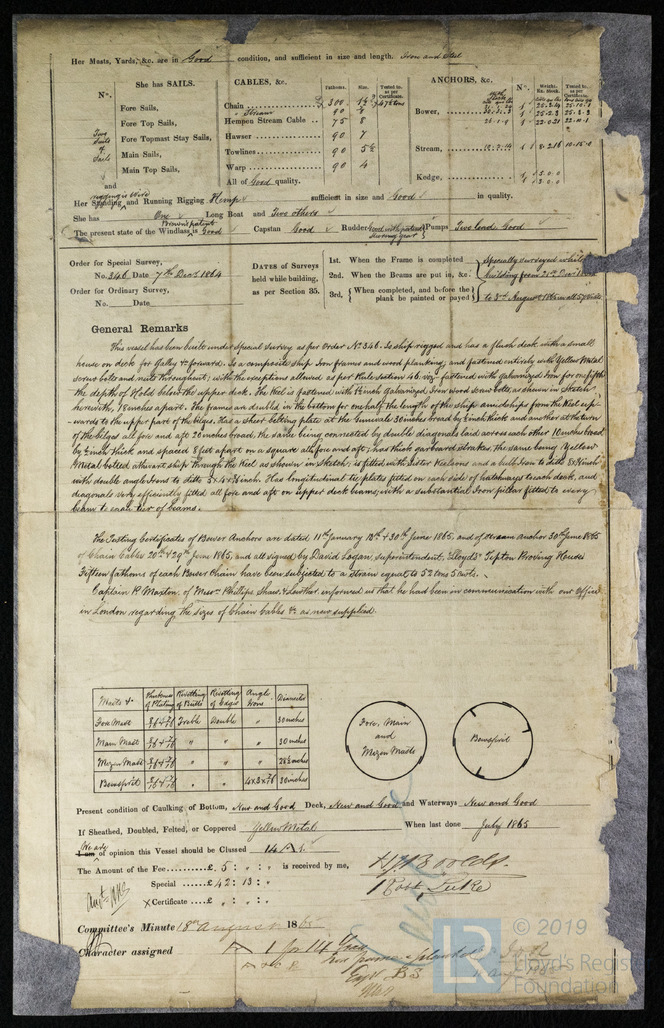 Her Masts, Yards, &c. are in Good condition, and sufficient in size and length. Iron and Steel
She has SAILS.
CABLES, &c.
Fathoms.
Size.
Tested to, as per Certificate.
ANCHORS, &c.
N°.
Weight. Ex. Stock.
Tested to, as per Certificate.
N°.
Fore Sails,
Fore Top Sails,
Fore Topmast Stay Sails,
Main Sails,
Main Top Sails,
Two Suits of Sails
and
Chain 300
Stream 90
Hempen Stream Cable 75 8
Hawser 90 7
Towlines 90 5½
Warp 90 4
All of Good quality.
Bower,
Stream,
Kedge,
rigging is Wire
Her Standing and Running Rigging Hemp sufficient in size and Good in quality.
She has One Long Boat and Two others
The present state of the Windlass is Good Capstan Good Rudder Good with patent Pumps Two lead Good
Order for Special Survey,
No. 346 Date 7th Decr 1864
Order for Ordinary Survey,
No. Date
DATES of Surveys held while building, as per Section 35.
1st. When the Frame is completed
2nd. When the Beams are put in, &c.
3rd, When completed, and before the plank be painted or payed
Specially surveyed whilst
building from
to 3rd August 1865 in all 57 visits
General Remarks
This vessel has been built under Special Survey as per Order No 346. Is ship rigged and has a flush deck with a small
house on deck for Galley &c forward. Is a composite ship Iron frames and wood planking, and fastened entirely with Yellow Metal
screw bolts and nuts throughout, with the exceptions allowed as per Rule section 46. viz. fastened with Galvanized Iron for one fifth
the depth of Hold below the upper deck. The Keel is fastened with 1⅛ inch Galvanized Iron wood screw bolts, as shown in Sketch
herewith, 18 inches apart. The frames are doubled in the bottom for one half the length of the ship amidships from the Keel up-
-wards to the upper part of the bilges. Has a sheer belting plate at the Gunwale 30 inches broad by ⅝ inch thick and another at the turn
of the bilges all fore and aft 20 inches broad, the same being connected by double diagonals laid across each other 10 inches broad
by ½ inch thick and spaced 8 feet apart on a square all fore and aft; has thick garboard strakes, the same being Yellow
Metal bolted athwart ship through the Keel as shewn in Sketch, is fitted with Sister Keelsons and a bulb Iron to ditto
with double angle Irons to ditto Has longitudinal tie plates fitted on each side of hatchways to each deck, and
diagonals very efficiently fitted all fore and aft on upper deck beams, with a substantial Iron pillar fitted to every
beam to each tier of beams.
The Testing Certificates of Bower Anchors are dated 11th January 13th & 30th June 1865. and of stream anchor 30th June 1865
of Chain Cables 20th & 29th June 1865, and all signed by David Logan, superintendent, Lloyds' Tipton Proving Houses
Fifteen fathoms of each Bower Chain have been subjected to a strain equal to 52 tons 5 cwts.
Captain R. Maxton, of Messrs Phillips Shaw, & Lowther informed us that he had been in communication with our Office
in London regarding the sizes of Chain Cables &c as now supplied.
Masts &
Thickness of Plating
Rivetting of Butts
Rivetting of Edges
Angle Irons
Diameter
Fore Mast Treble Double " 30 inches
Main Mast " " " 30 inches
Mizen Mast " " "
Bowsprit " " 30 inches
Fore, Main
and
Mizen Masts
Bowsprit
Present condition of Caulking of Bottom, New and Good Deck, New and Good and Waterways New and Good
If Sheathed, Doubled, Felted, or Coppered Yellow Metal When last done July 1865
We are
I am of opinion this Vessel should be Classed 14 A 1
The Amount of the Fee £ 5 : " : " is received by me,
Special £ 42 : 13 : "
Certificate £ " : " : "
Robt Luke
Committee's Minute 18th August 1865
Character assigned A 1 for 14 Years
© 2019
LR
Lloyd's Register
Foundation